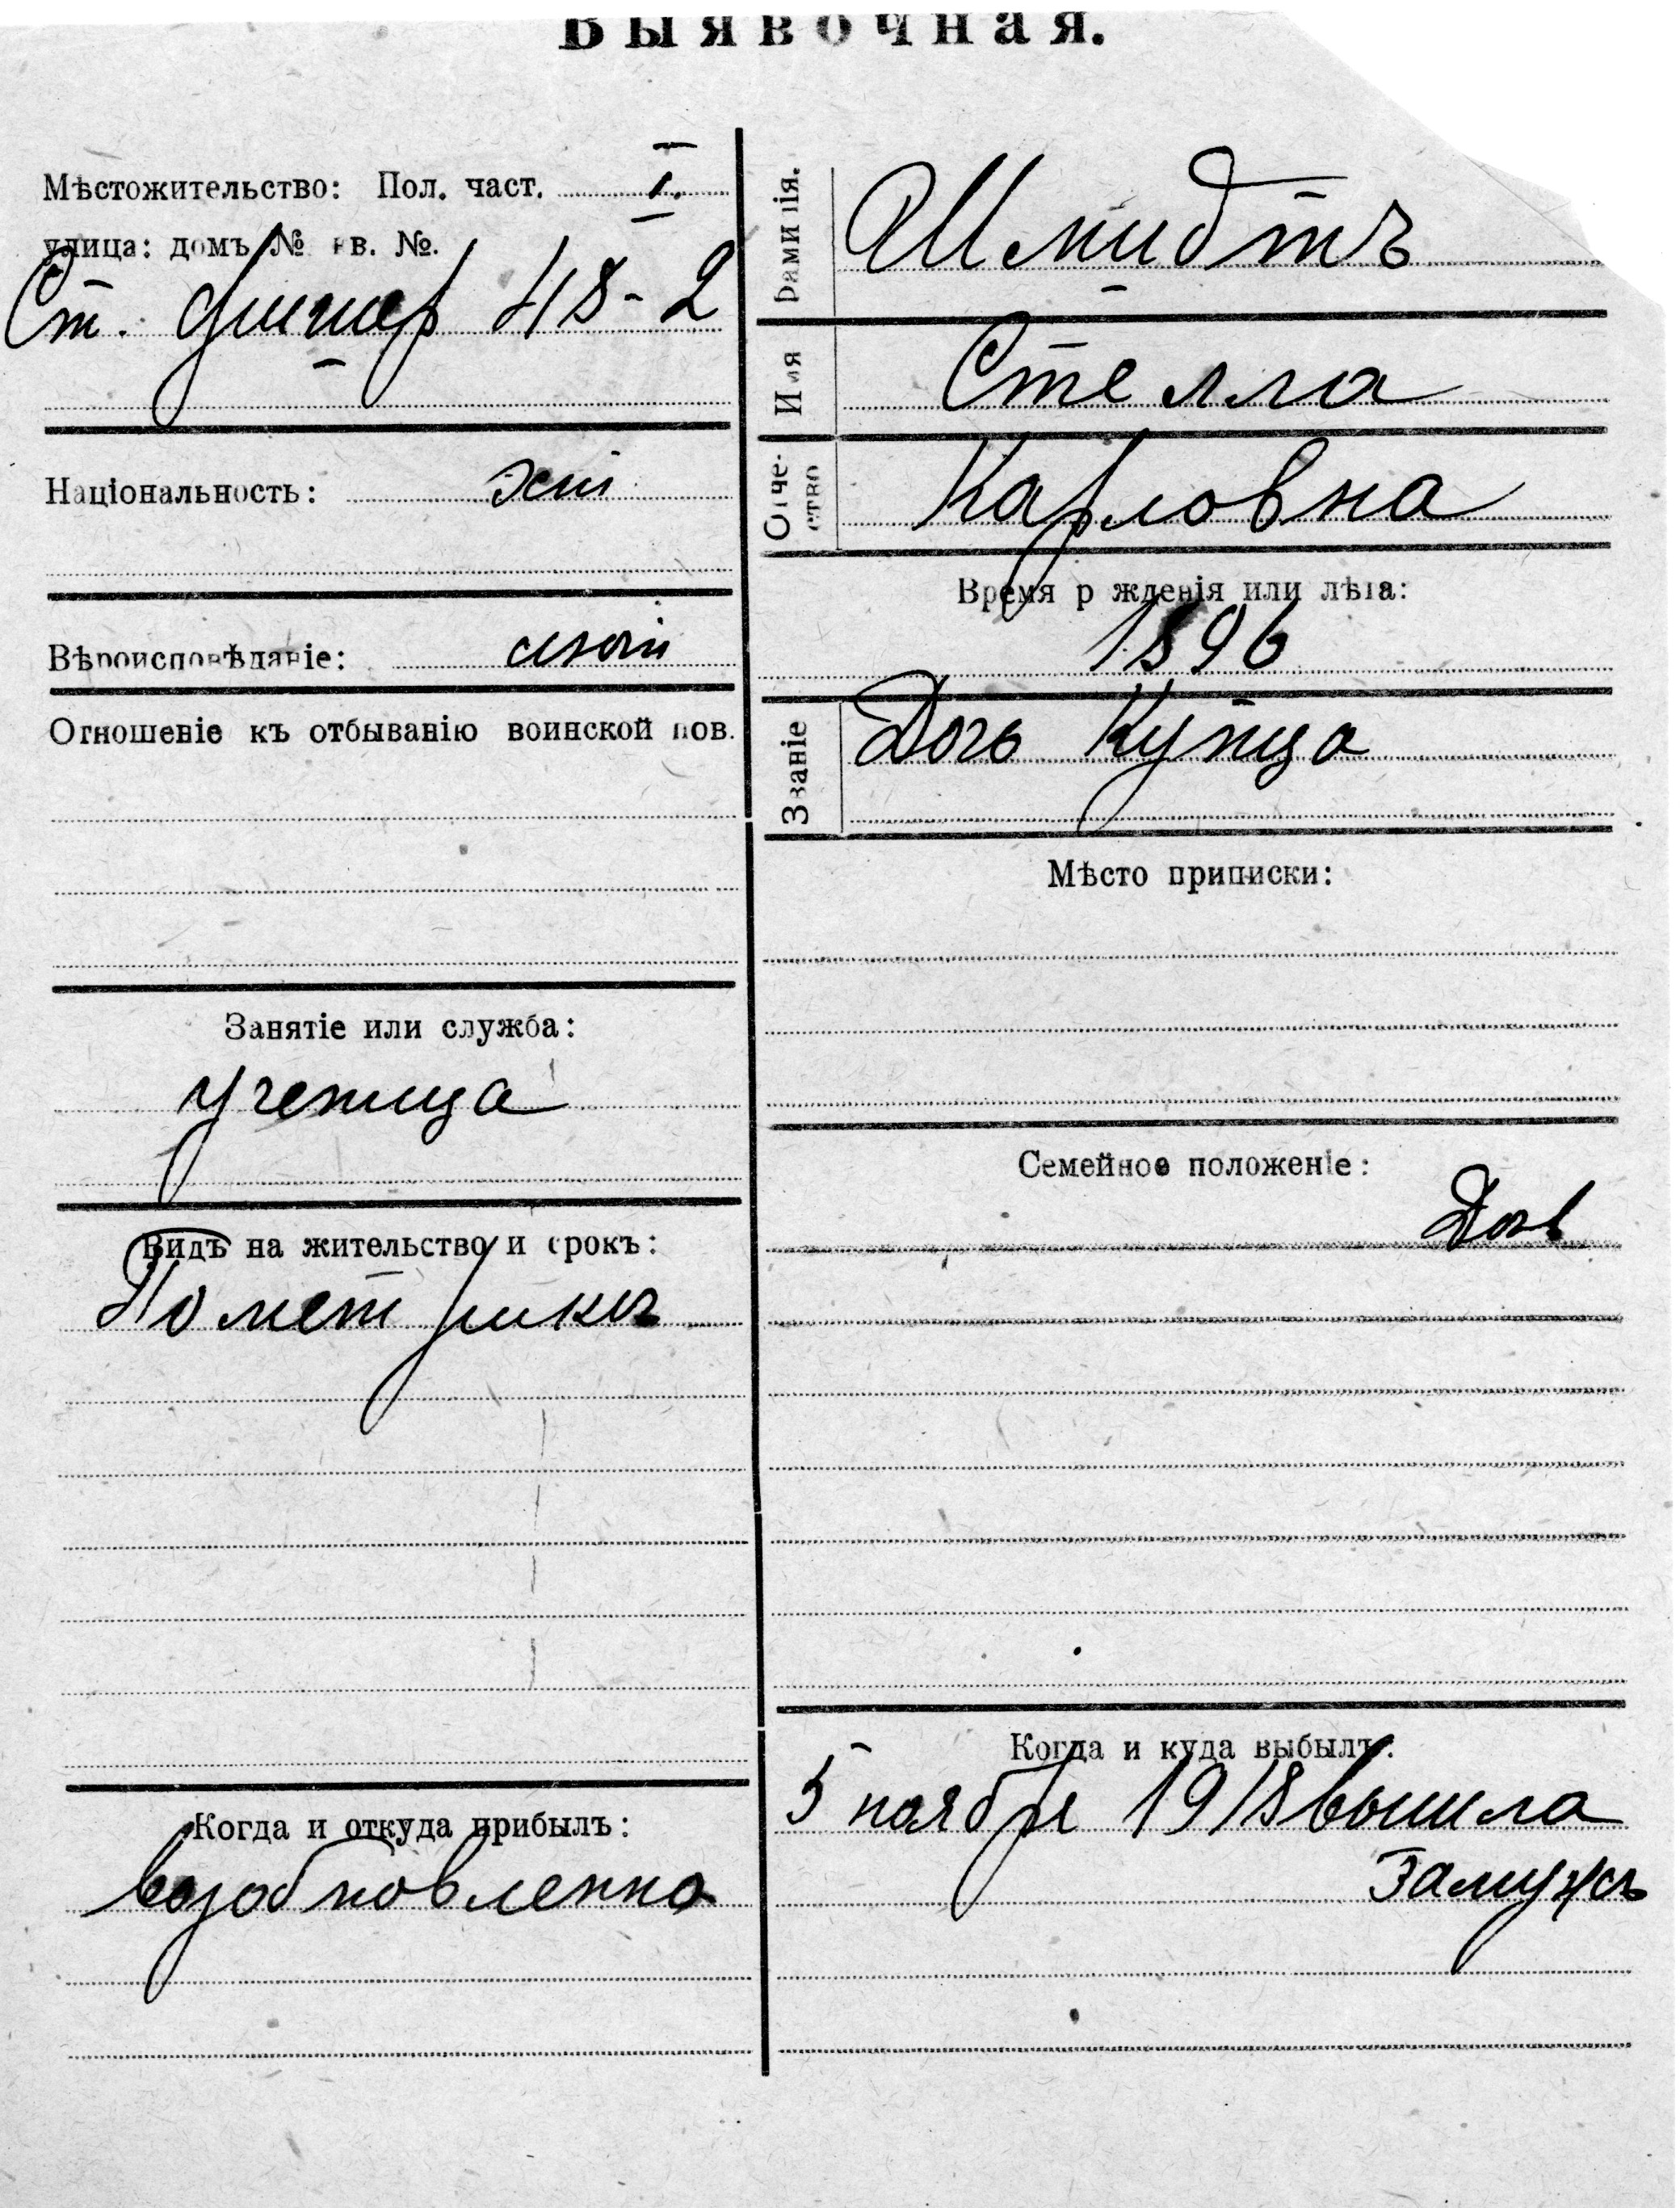 Выявочная.
Мѣстожительство: Пол. част. I.
улица: домъ № кв. №.
Ст. 48-2
Національность: эст
Вѣроисповѣданіе:
Отношеніе къ отбыванію воинской пов.
Занятіе или служба:
ученица
Видъ на жительство и срокъ:
По метрикѣ
Когда и откуда прибылъ:
возобновленно
Фамилія.
Шмидтъ
Имя
Стелла
Отче-
ство
Карловна
Время рожденія или лѣта:
1896
Званіе
Дочь Купца
Мѣсто приписки:
Семейное положеніе:
Когда и куда выбылъ:
5 ноября 1918 вышла
замужъ